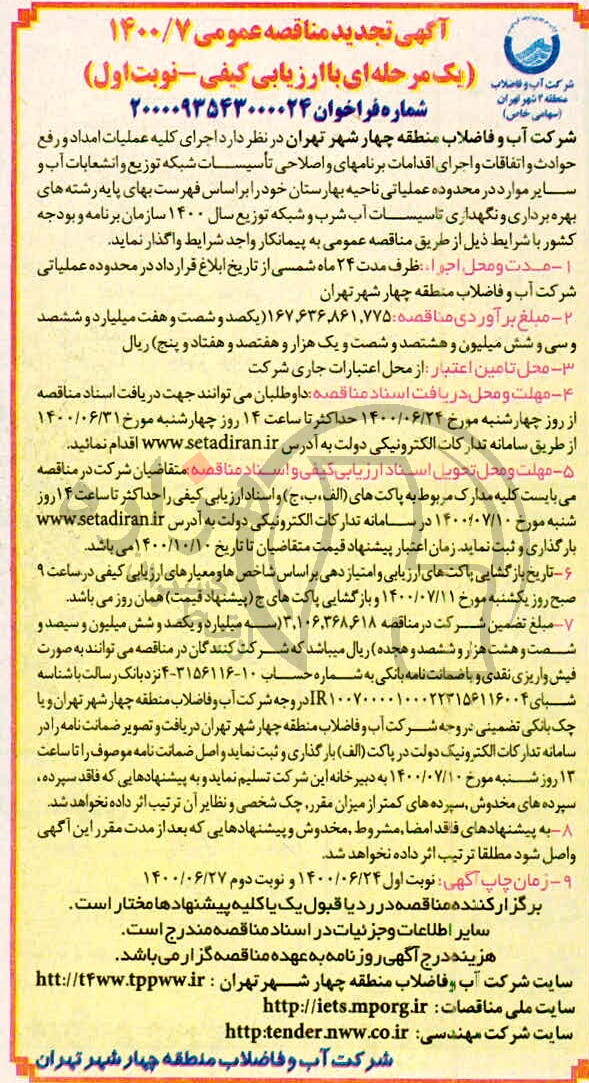 آگهی تجدید مناقصه عمومی ۱۴۰۰/۷
(یک مرحله ای با ارزیابی کیفی - نوبت اول)
شماره فراخوان ۲۰۰۰۰۹۳۵۴۳۰۰۰۰۲۴
شرکت آب و فاضلاب
منطقه ۴ شهر تهران
(سهامی خاص)
شرکت آب و فاضلاب منطقه چهار شهر تهران در نظر دارد اجرای کلیه عملیات امداد و رفع
حوادث و اتفاقات و اجرای اقدامات برنامهای و اصلاحی تأسیسات شبکه توزیع و انشعابات آب و
سایر موارد در محدوده عملیاتی ناحیه بهارستان خود را بر اساس فهرست بهای پایه رشته های
بهره برداری و نگهداری تاسیسات آب شرب و شبکه توزیع سال ۱۴۰۰ سازمان برنامه و بودجه
کشور با شرایط ذیل از طریق مناقصه عمومی به پیمانکار واجد شرایط واگذار نماید.
۱- مدت و محل اجرا: ظرف مدت ۲۴ ماه شمسی از تاریخ ابلاغ قرارداد در محدوده عملیاتی
شرکت آب و فاضلاب منطقه چهار شهر تهران
۲- مبلغ برآوردی مناقصه: ۱۶۷,۶۳۶,۸۶۱,۷۷۵ (یکصد و شصت و هفت میلیارد و ششصد
و سی و شش میلیون و هشتصد و شصت و یک هزار و هفتصد و هفتاد و پنج) ریال
۳- محل تامین اعتبار: از محل اعتبارات جاری شرکت
۴- مهلت و محل دریافت اسناد مناقصه: داوطلبان می توانند جهت دریافت اسناد مناقصه
از روز چهارشنبه مورخ ۱۴۰۰/۰۶/۲۴ حداکثر تا ساعت ۱۴ روز چهارشنبه مورخ ۱۴۰۰/۰۶/۳۱
از طریق سامانه تدارکات الکترونیکی دولت به آدرس www.setadiran.ir اقدام نمائید.
۵- مهلت و محل تحویل اسناد ارزیابی کیفی و اسناد مناقصه: متقاضیان شرکت در مناقصه
می بایست کلیه مدارک مربوط به پاکت های (الف، ب، ج) و اسناد ارزیابی کیفی را حداکثر تا ساعت ۱۴ روز
شنبه مورخ ۱۴۰۰/۰۷/۱۰ در سامانه تدارکات الکترونیکی دولت به آدرس www.setadiran.ir
بارگذاری و ثبت نماید. زمان اعتبار پیشنهاد قیمت متقاضیان تا تاریخ ۱۴۰۰/۱۰/۱۰ می باشد.
۶- تاریخ بازگشایی پاکت های ارزیابی و امتیاز دهی بر اساس شاخص ها و معیارهای ارزیابی کیفی در ساعت ۹
صبح روز یکشنبه مورخ ۱۴۰۰/۰۷/۱۱ و بازگشایی پاکت های ج (پیشنهاد قیمت) همان روز می باشد.
۷- مبلغ تضمین شرکت در مناقصه ۳,۱۰۶,۳۶۸,۶۱۸ (سه میلیارد و یکصد و شش میلیون و سیصد و
شصت و هشت هزار و ششصد و هجده) ریال میباشد که شرکت کنندگان در مناقصه می توانند به صورت
فیش واریزی نقدی و یا ضمانت نامه بانکی به شماره حساب ۱۰-۳۱۵۶۱۱۶-۴ نزد بانک رسالت با شناسه
شبای IR۱۰۰۷۰۰۰۰۱۰۰۰۲۲۳۱۵۶۱۱۶۰۰۴ در وجه شرکت آب و فاضلاب منطقه چهار شهر تهران و یا
چک بانکی تضمینی در وجه شرکت آب و فاضلاب منطقه چهار شهر تهران دریافت و تصویر ضمانت نامه را در
سامانه تدارکات الکترونیک دولت در پاکت (الف) بارگذاری و ثبت نماید و اصل ضمانت نامه موصوف را تا ساعت
۱۳ روز شنبه مورخ ۱۴۰۰/۰۷/۱۰ به دبیرخانه این شرکت تسلیم نماید و به پیشنهادهایی که فاقد سپرده،
سپرده های مخدوش، سپرده های کمتر از میزان مقرر، چک شخصی و نظایر آن ترتیب اثر داده نخواهد شد.
۸- به پیشنهادهای فاقد امضا، مشروط، مخدوش و پیشنهادهایی که بعد از مدت مقرر این آگهی
واصل شود مطلقا ترتیب اثر داده نخواهد شد.
۹- زمان چاپ آگهی: نوبت اول ۱۴۰۰/۰۶/۲۴ و نوبت دوم ۱۴۰۰/۰۶/۲۷
برگزار کننده مناقصه در رد یا قبول یک یا کلیه پیشنهادها مختار است.
سایر اطلاعات و جزئیات در اسناد مناقصه مندرج است.
هزینه درج آگهی روزنامه به عهده مناقصه گزار می باشد.
سایت شرکت آب و فاضلاب منطقه چهار شهر تهران: htt://t۴ww.tppww.ir
سایت ملی مناقصات: http://iets.mporg.ir
سایت شرکت مهندسی: http:tender.nww.co.ir
شرکت آب و فاضلاب منطقه چهار شهر تهران